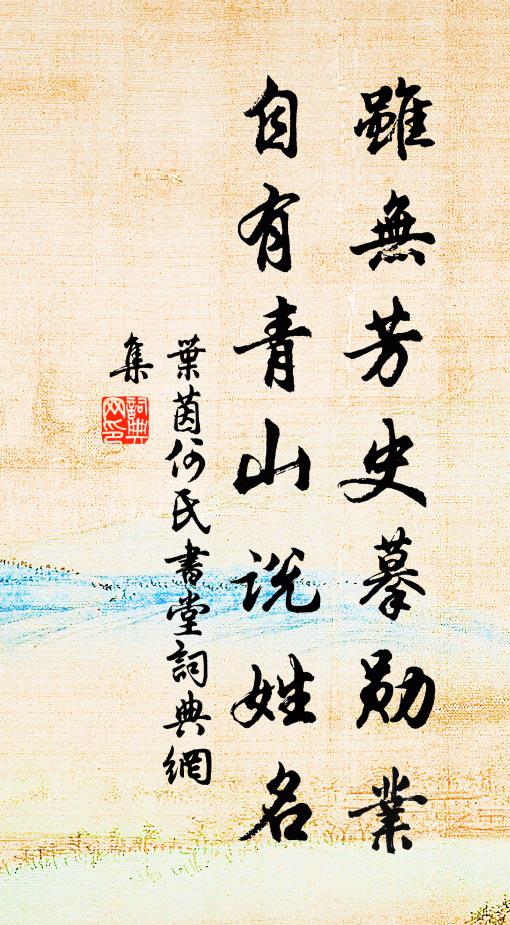 雖無芳史摹勛業
自有青山說姓名
葉茵何氏書堂詞典網
集
詞典
网色